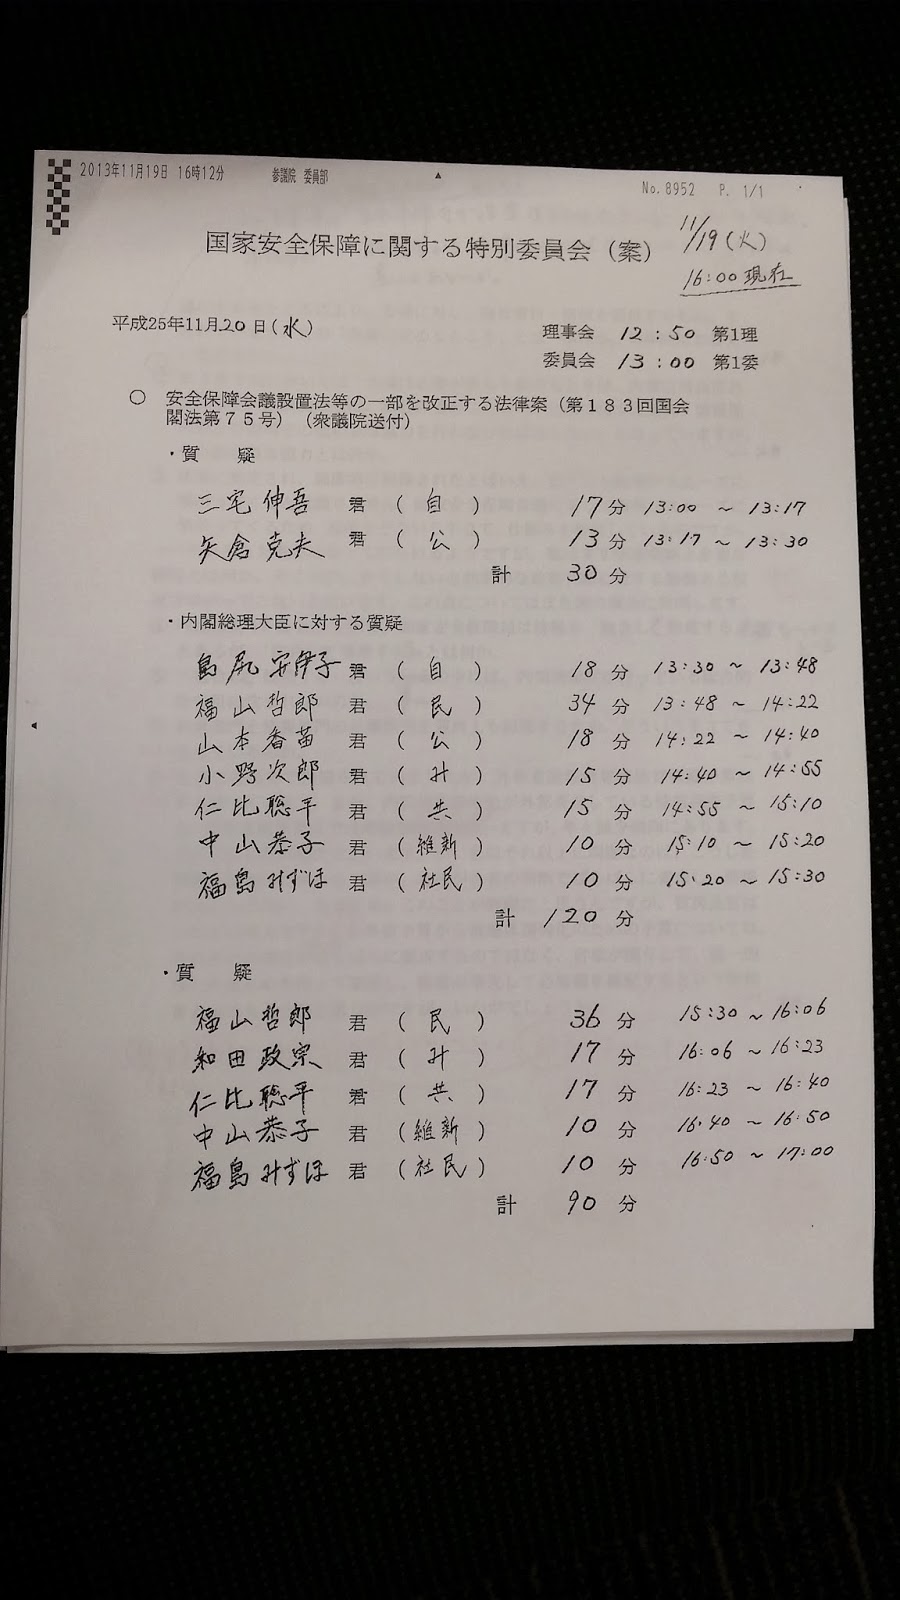 2013年11月19日 16時12分 参議院 委員部 No.8952 P. 1/1
11/19(火)
国家安全保障に関する特別委員会（案）
16:00現在
平成25年11月20日(水)
理事会 12:50 第1理
委員会 13:00 第1委
○ 安全保障会議設置法等の一部を改正する法律案（第１８３回国会
閣法第７５号）（衆議院送付）
・質 疑
三宅伸吾 君 (自) 17分 13:00 ~ 13:17
矢倉克夫 君 (公) 13分 13:17 ~ 13:30
計 30分
・内閣総理大臣に対する質疑
島尻安伊子 君 (自) 18分 13:30 ~ 13:48
福山哲郎 君 (民) 34分 13:48 ~ 14:22
山本香苗 君 (公) 18分 14:22 ~ 14:40
小野次郎 君 (み) 15分 14:40 ~ 14:55
仁比聡平 君 (共) 15分 14:55 ~ 15:10
中山恭子 君 (維新) 10分 15:10 ~ 15:20
福島みずほ 君 (社民) 10分 15:20 ~ 15:30
計 120分
・質 疑
福山哲郎 君 (民) 36分 15:30 ~ 16:06
和田政宗 君 (み) 17分 16:06 ~ 16:23
仁比聡平 君 (共) 17分 16:23 ~ 16:40
中山恭子 君 (維新) 10分 16:40 ~ 16:50
福島みずほ 君 (社民) 10分 16:50 ~ 17:00
計 90分